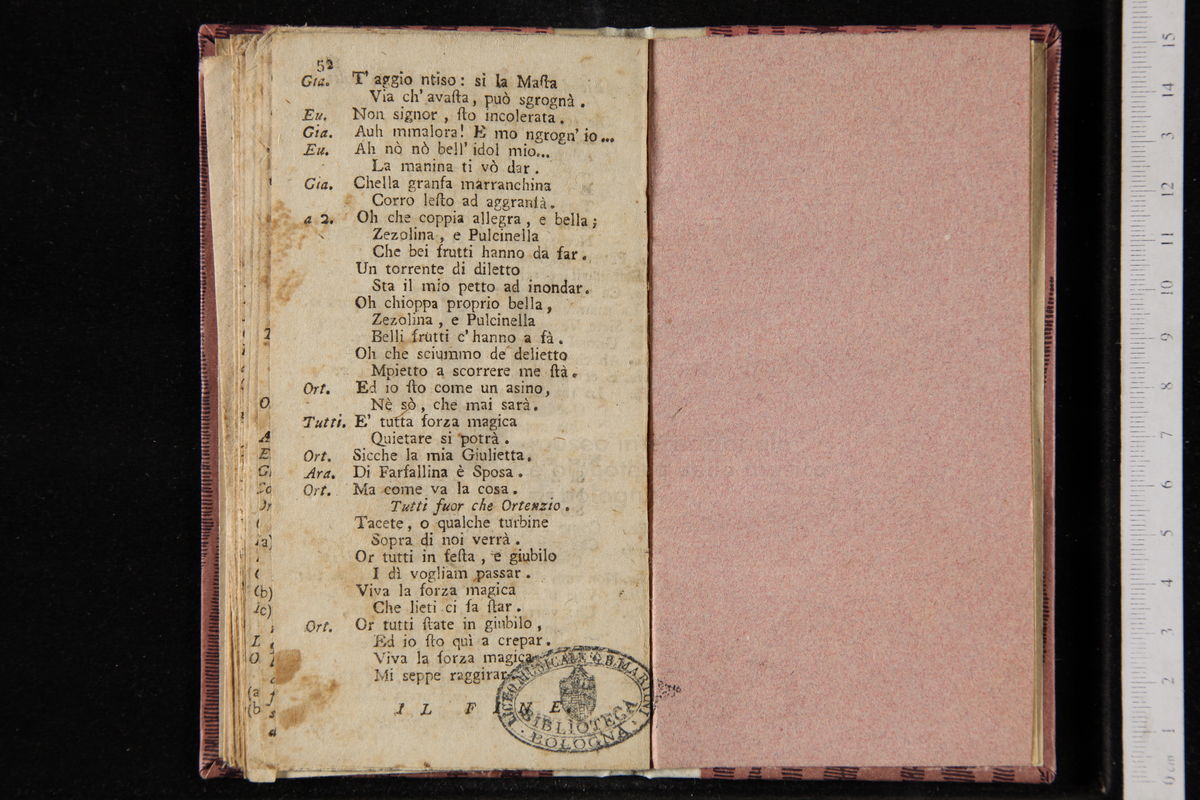 52
Gia. T' aggio ntiso: si la Maſta
Via ch' avaſta, può sgrognà.
Eu. Non signor, ſto incolerata.
Gia. Auh mmalora! E mo ngrogn' io...
Eu. Ah nò nò bell' idol mio...
La manina ti vò dar.
Gia. Chella granfa marranchina
Corro leſto ad aggranfà.
a 2. Oh che coppia allegra, e bella;
Zezolina, e Pulcinella
Che bei frutti hanno da far.
Un torrente di diletto
Sta il mio petto ad inondar.
Oh chioppa proprio bella,
Zezolina, e Pulcinella
Belli frutti c' hanno a fà.
Oh che sciummo de delietto
Mpietto a scorrere me ſtà.
Ort. Ed io ſto come un asino,
Nè sò, che mai sarà.
Tutti. E' tutta forza magica
Quietare si potrà.
Ort. Sicche la mia Giulietta.
Ara. Di Farfallina è Sposa.
Ort. Ma come va la cosa.
Tutti fuor che Ortenzio.
Tacete, o qualche turbine
Sopra di noi verrà.
Or tutti in feſta, e giubilo
I dì vogliam passar.
Viva la forza magica
Che lieti ci fa ſtar.
Ort. Or tutti ſtate in giubilo,
Ed io ſto quì a crepar.
Viva la forza magica
Mi seppe raggirar
IL FINE.
LICEO MUSICALE G.B. MARTINI
BIBLIOTECA
BOLOGNA
0 cm 1 2 3 4 5 6 7 8 9 10 11 12 13 14 15